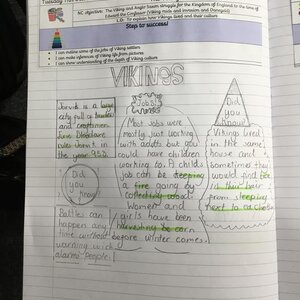 NC objective: The Viking and Anglo Saxon struggle for the Kingdom of England to the time of
Edward the Confessor (Viking raids and invasion and Danegeld)
L.O. To explain how Vikings lived and their culture
Steps to success!
I can outline some of the jobs of Viking settlers
I can make inferences of Viking life from pictures
I can show understanding of the depth of Viking culture
VIKINGS
Jorvik is a large
city full of
and craftsmen.
rules Jorvik in
the year 952.
Did
you
Know?
Battles can
happen any
time without
warning which
alarms people.
Jobs
Most jobs were
mostly just working
with adults but you
could have children
working to. A childs
job can be keeping
a fire going by
collecting wood.
Women and
girls have been
harvesting the corn
before winter comes.
Did
you
Know?
Vikings lived
in the same
house and
sometimes they
would find
in their hair
from sleeping
next to